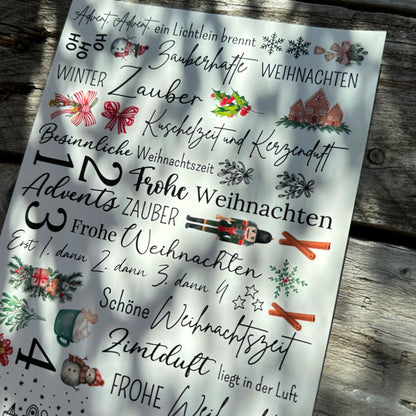 Advent, Advent ein Lichtlein brennt
HO HO HO
Zauberhafte WEIHNACHTEN
WINTER Zauber
Kuschelzeit und Kerzenduft
Besinnliche Weihnachtszeit
1 2 Frohe Weihnachten
Advents ZAUBER
3 Frohe Weihnachten
Erst 1. dann 2. dann 3. dann 4
Schöne Weihnachtszeit
4 Zimtduft liegt in der Luft
FROHE